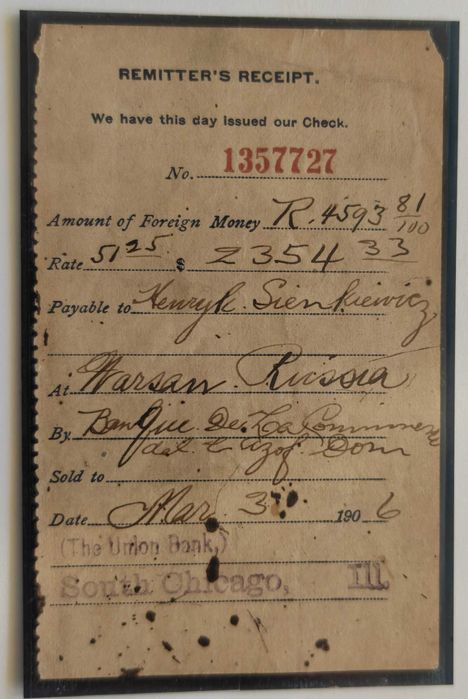 REMITTER'S RECEIPT.
We have this day Issued our Check.
No. 1357727
Amount of Foreign Money R. 4593 81/100
Rate 51 25 $ 2354 33
Payable to Henryk Sienkiewicz
At Warsaw Russia
By Banque De La Commerce
de Azof Don
Sold to
Date Mar 3 1906
(The Union Bank,)
South Chicago, Ill.